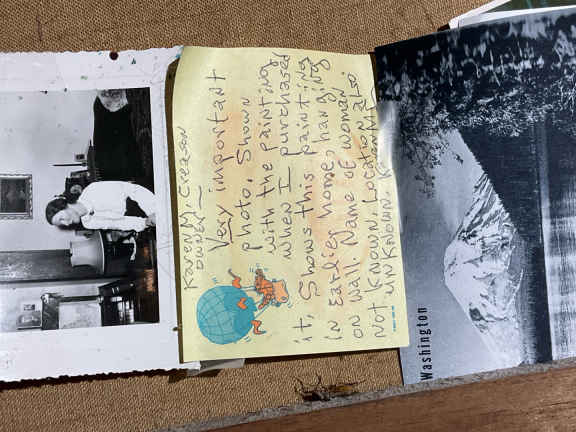 Karen M, Creason
owner —
Very important
photo, Shown
with the painting
when I purchased
it, Shows this painting
in Earlier home, hanging
on wall. Name of woman
Not Known, Location also
UNKNOWN. Karen M.
Washington